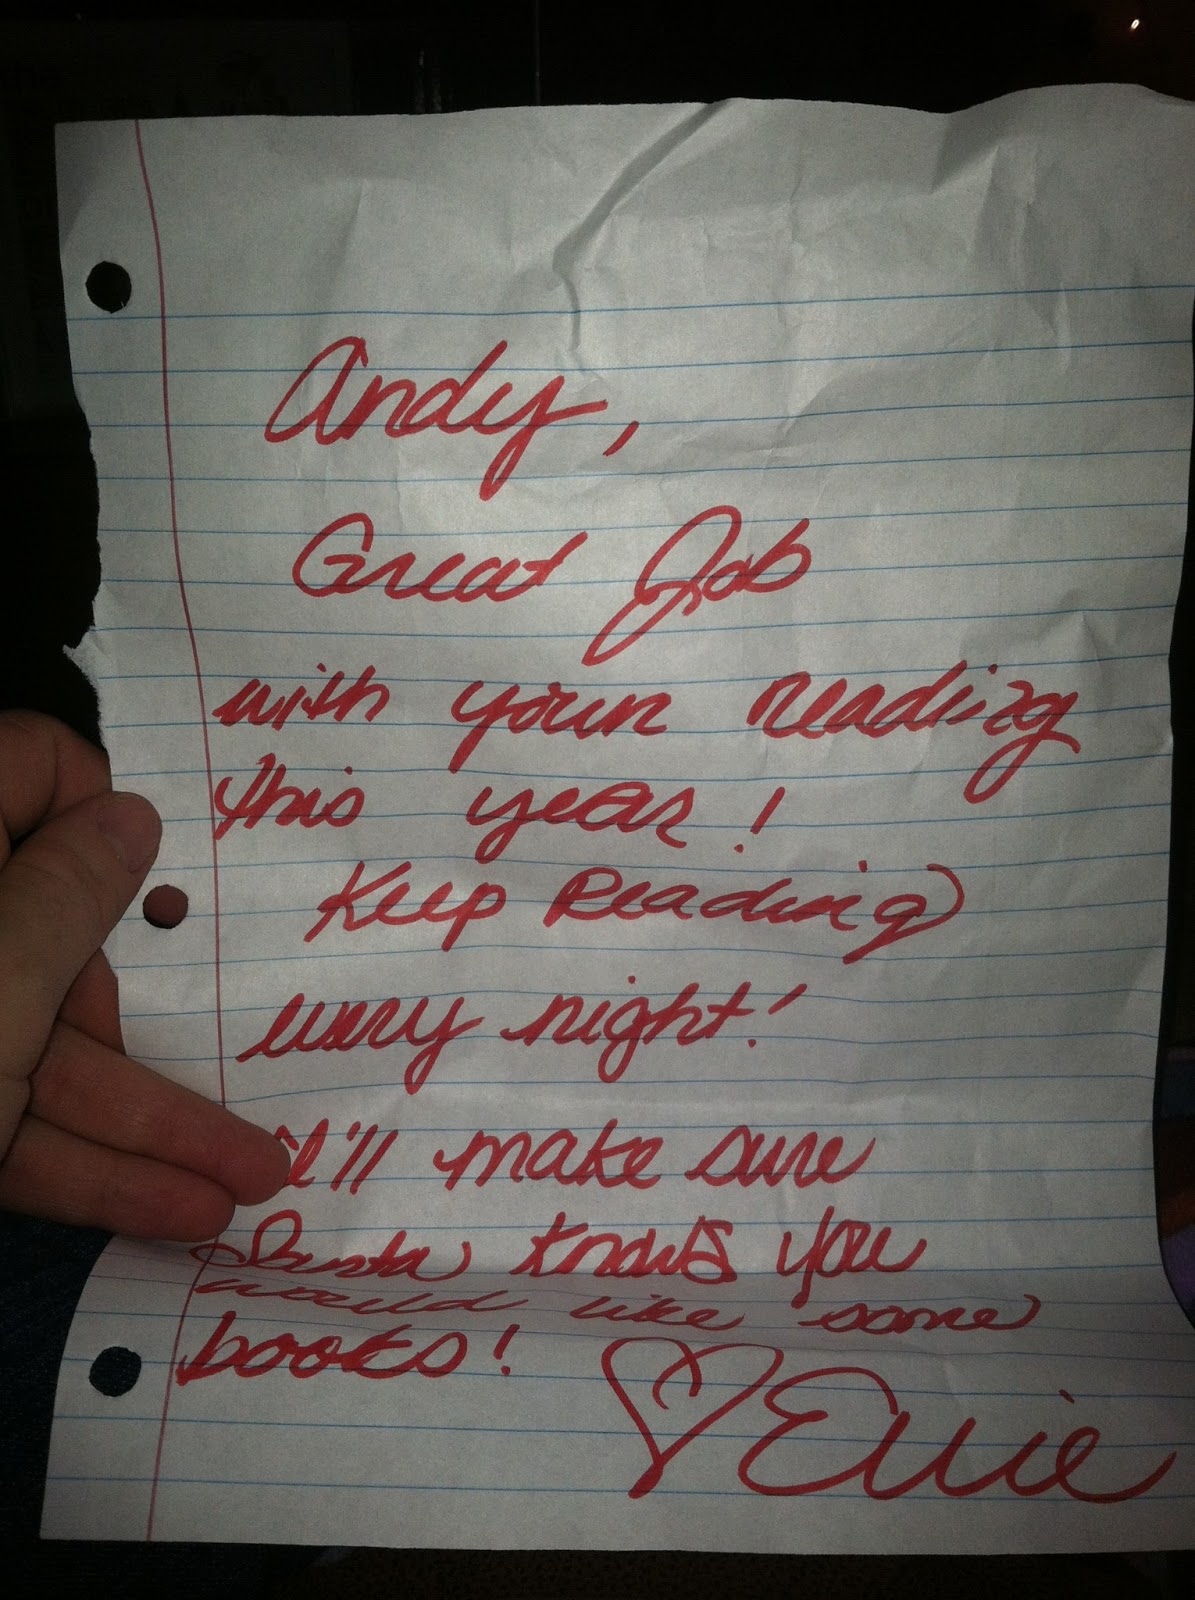 Andy,
Great Job
with your reading
this year!
Keep Reading
every night!
I'll make sure
Santa knows you
would like some
books!
♡ Ellie